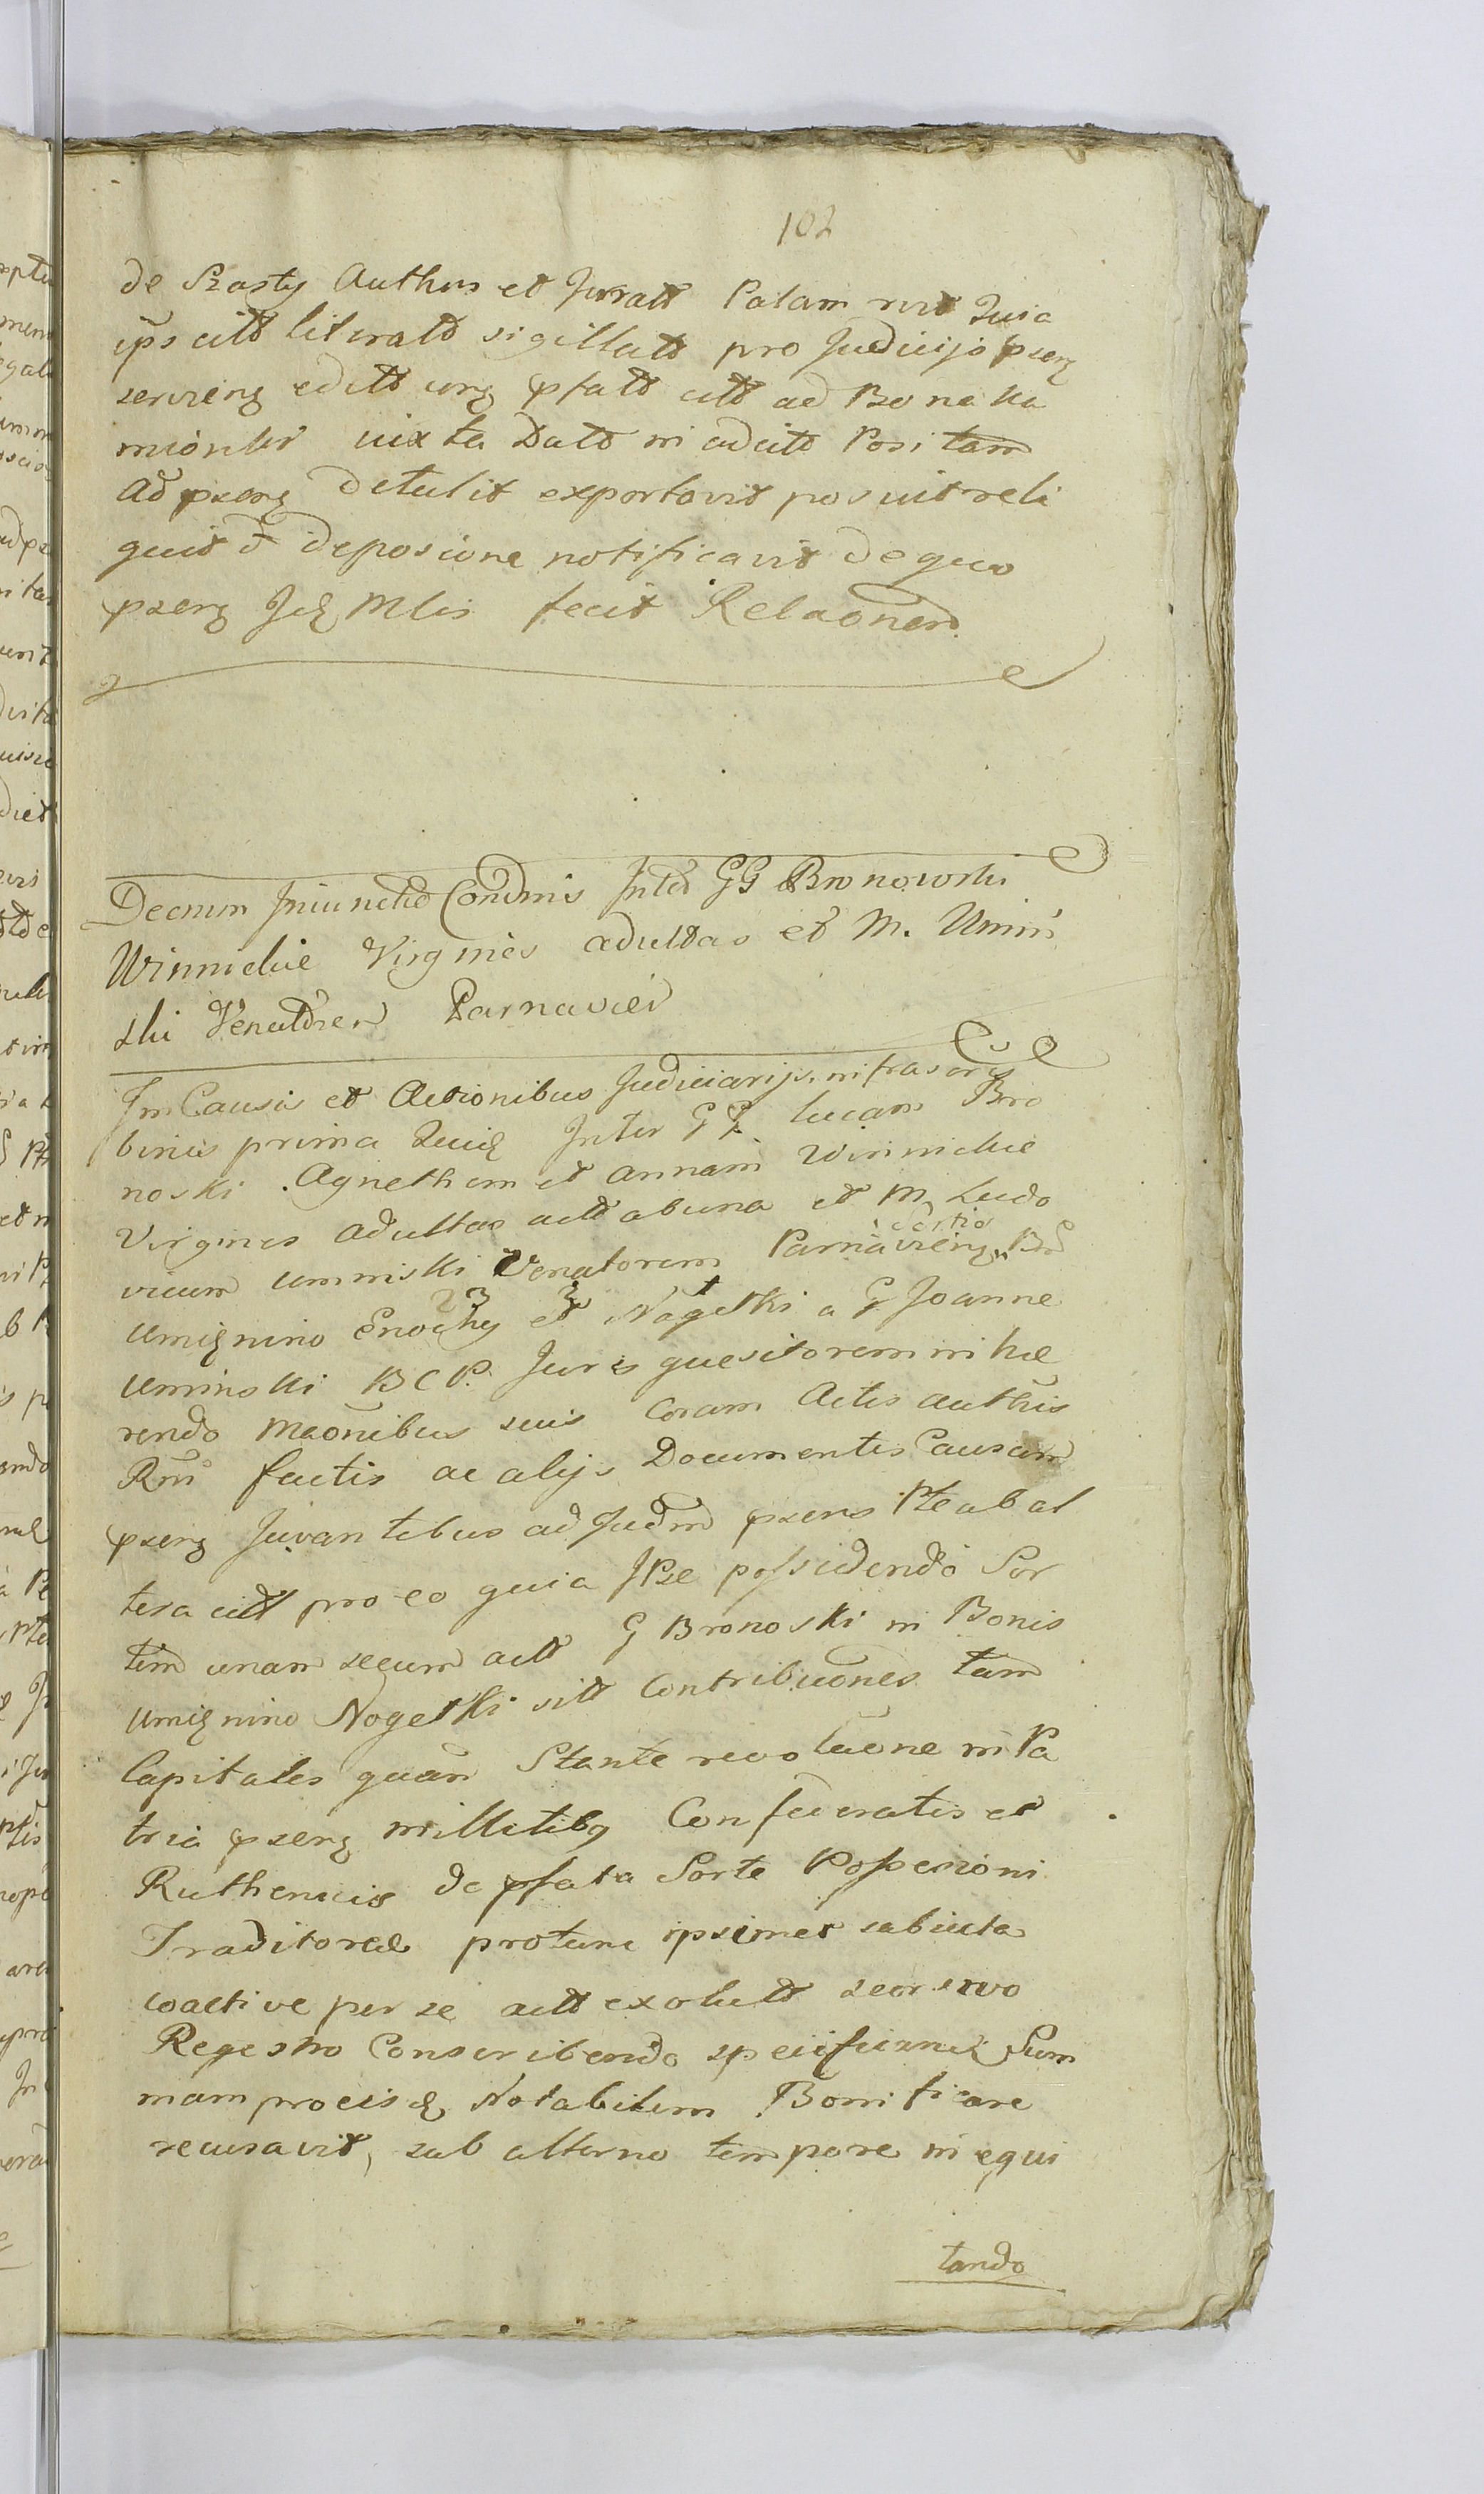 102
de Szasty Authus et Juratt Palam rect Quia
ips citt literatt sigillatt pro Judicijo pseng
servieng editt ung pfatt citt ad Bona Ka
mionki iuxta Datt in adcitt Positam
Ad pseng Detulit exportavit posuit reli
quit d deposicione notificavit de quo
pseng Jud Mlis fecit Relaonem
Decrum Iniunctio Condnis Inter GG Bronowski
Winnickie Virgines adultas et M. Umin
ski Venatorem Parnavien
In Causis et Actionibus Judiciarijs infrascris
binis prima Quid Inter GG Lucam Bro
noski Agnethem et annam Winnickie
Virgines adultas actt abuna et M. Ludo
vicum uminski Venatorem Parnavieng Bd
certio
umignino Enochy et Nagetki a G Joanne
uminski B C P. Juris quesitorem inhæ
rendo Maonibus suis Coram Actis authis
Rmi factis ac alijs Documentis Causam
pseng Juvantibus ad Judm psens Pte ab al
tera citt pro eo quia Ipse possidendo Sor
tem unam secum actt G Bronoski in Bonis
umignino Nogetki sitt Contribuones tam
Capitales quam Stante revoluone in Pa
tria pseng millitibq Confæderatis et
Ruthenicis de pfata Sorte Possesioni
Traditoreæ protunc ipsimet subiuta
coactive per se actt exolutt seorsivo
Regestro Conscribendo speciificand Sum
mam procisq Notabilem Bonificare
recusavit, sub alterno tempore in equi
tando